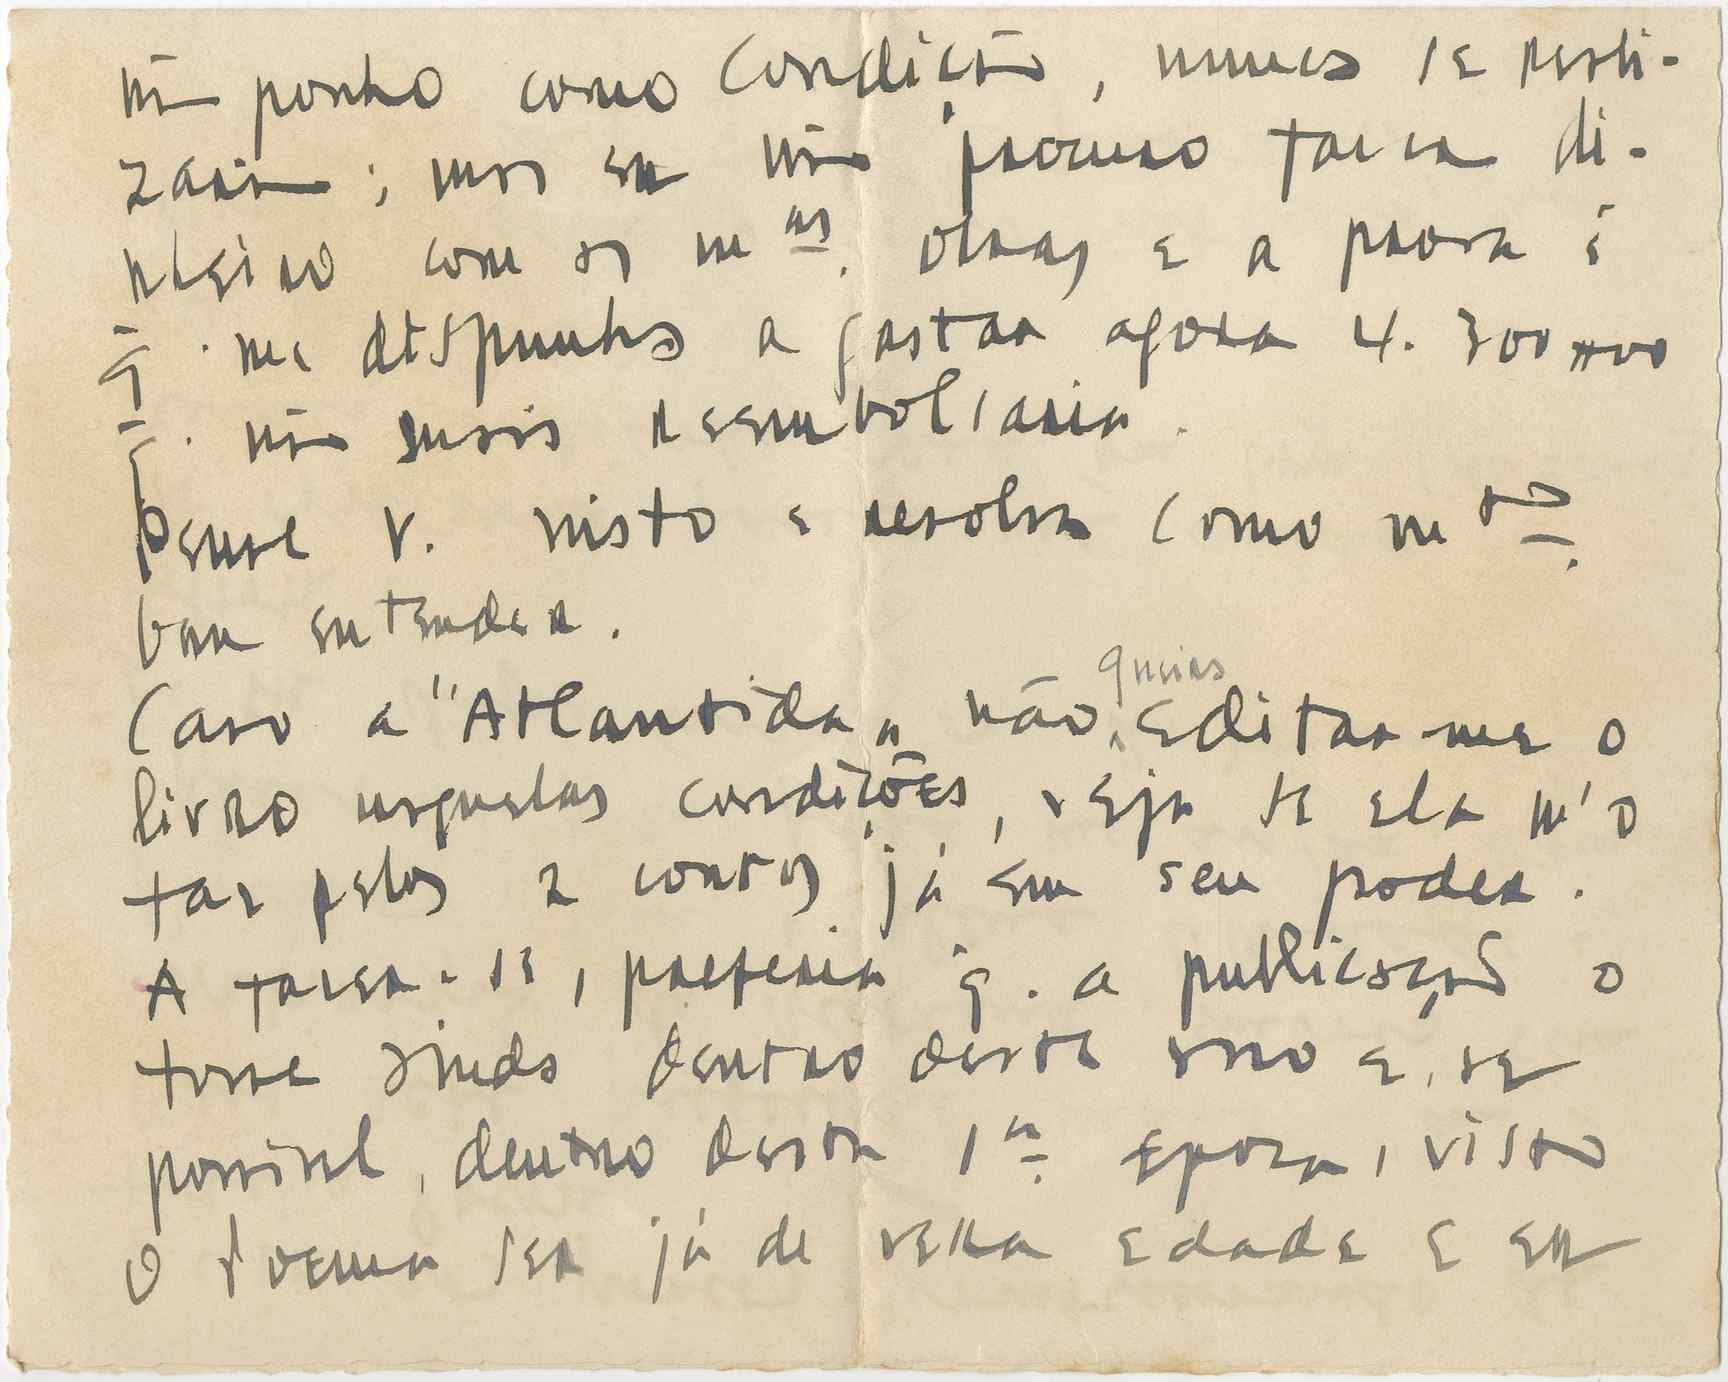 não ponho como condição, nunca se reali-
zaria; mas eu não procuro fazer di-
nheiro com as m.as obras e a prova é
q. me dispunha a gastar agora 4.300$00
q. não mais reembolsaria.
Pense V. nisto e resolva como m.to
bem entender.
Caso a "Atlantida" não queira editar-me o
livro naquelas condições, veja se ela m'o
faz pelos 2 contos já em seu poder.
A fazer-se, preferia q. a publicação o
fosse ainda dentro deste ano e, se
possivel, dentro desta 1.a epoca, visto
o Poema ser já de velha edade e eu